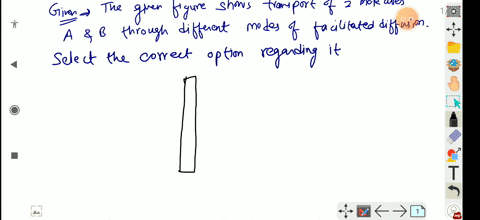 Given → The given figure shows transport of 2 molecules
A & B through different modes of facilitated diffusion.
Select the correct option regarding it
T
1